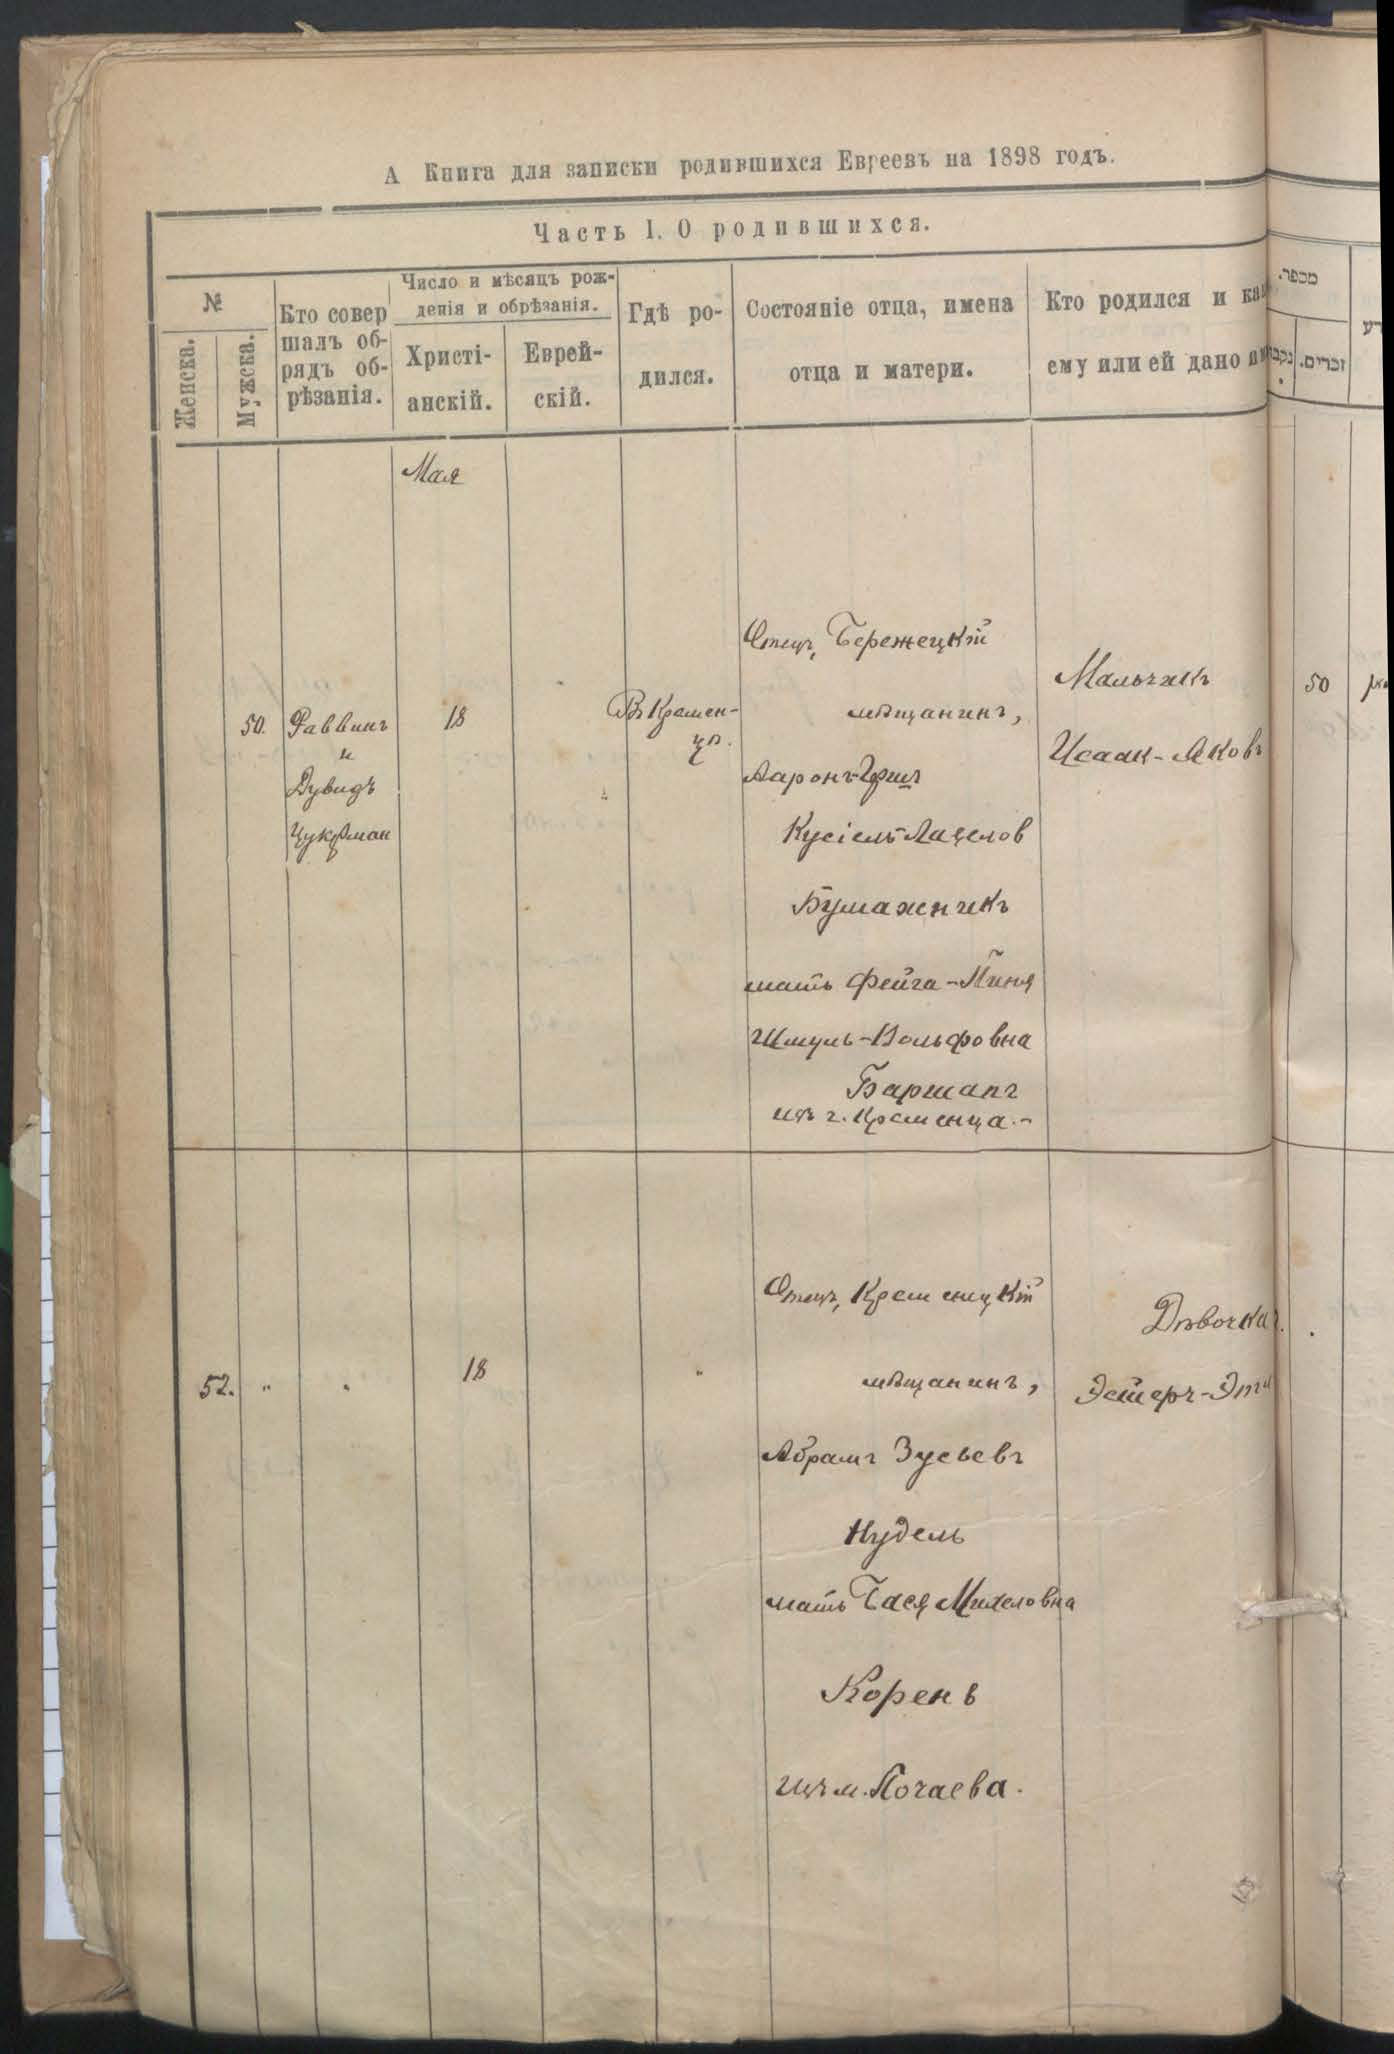 А Книга для записки родившихся Евреевъ на 1898 годъ.
Часть I. О родившихся.
№
Женска.
Мужска.
Кто совер
шалъ об-
рядъ об-
рѣзанія.
Число и мѣсяцъ рож-
денія и обрѣзанія.
Христі-
анскій.
Еврей-
скій.
Гдѣ ро-
дился.
Состояніе отца, имена
отца и матери.
Кто родился и ка
ему или ей дано
מספר.
זכרים.
Мая
50.
Раввинъ
и
Дувидъ
Цукерман
18
Въ Кремен-
цѣ.
Отецъ, Бережецкій
мѣщанинъ,
Ааронъ-
Кусіель-
Бумажникъ
мать Фейга-
Шмуль-Вольфовна
Баршапъ
изъ г. Кременца.-
Мальчикъ
Исаак-Яковъ
50
52.
"
"
18
"
Отецъ, Кременецкій
мѣщанинъ,
Абрамъ Зусьевъ
Нудель
мать Бася
Корень
изъ м. Почаева.
Дѣвочка
Эстеръ-